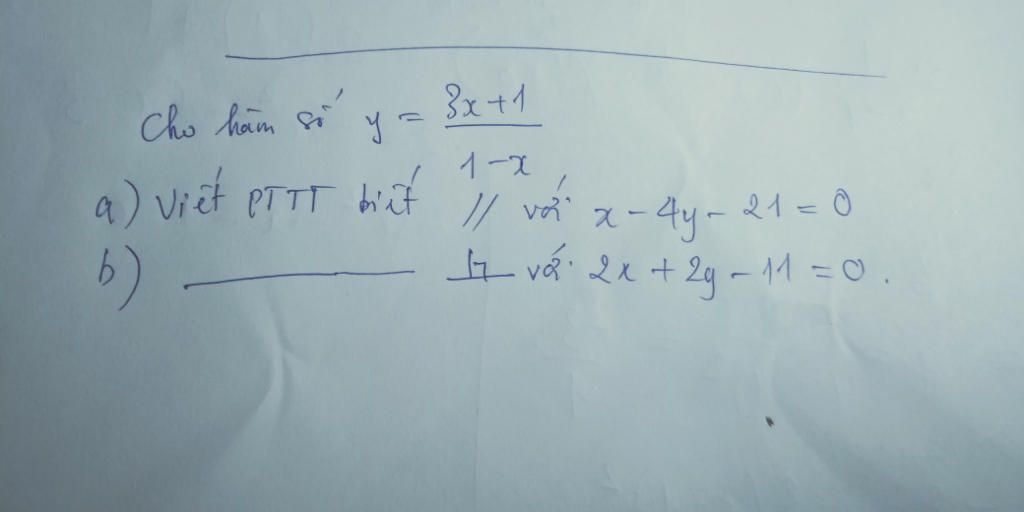 Cho hàm số y = (3x+1)/(1-x)
a) Viết PTTT biết // với x - 4y - 21 = 0
b) ________ ⊥ với 2x + 2y - 11 = 0.